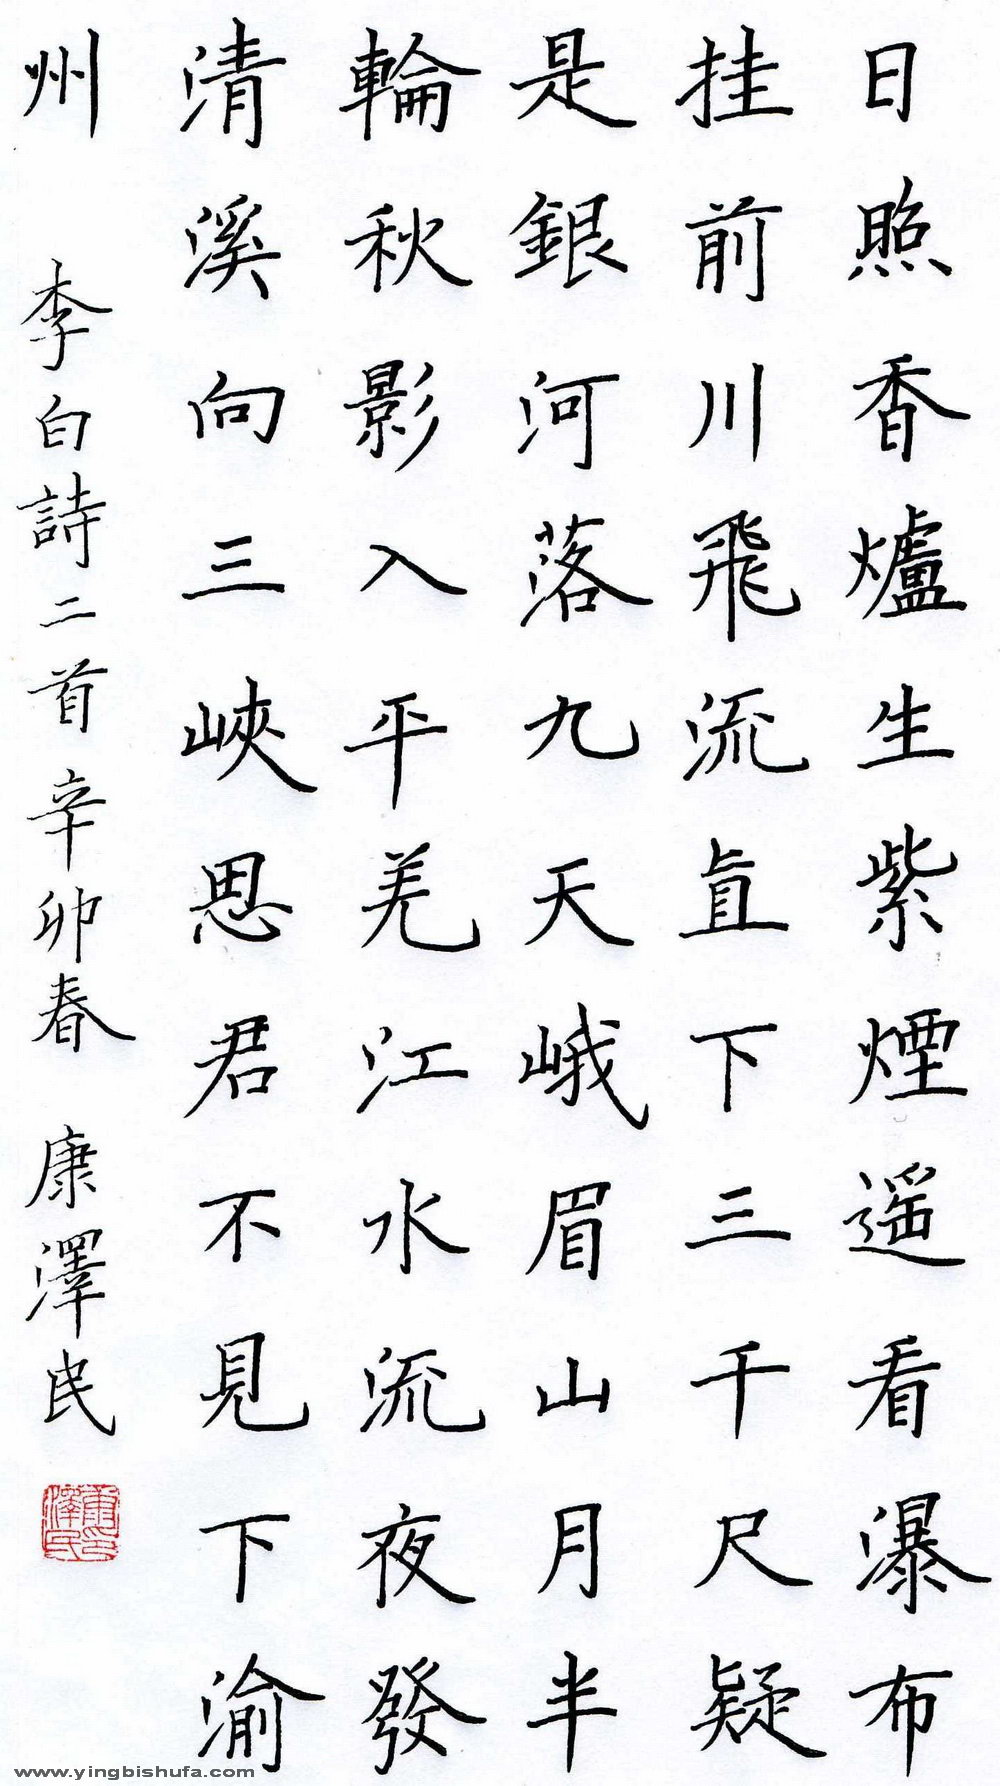 日照香爐生紫煙遥看瀑布
挂前川飛流直下三千尺疑
是銀河落九天峨眉山月半
輪秋影入平羌江水流夜發
清溪向三峽思君不見下渝
州 李白詩二首辛卯春 康澤民
康印澤民
www.yingbishufa.com